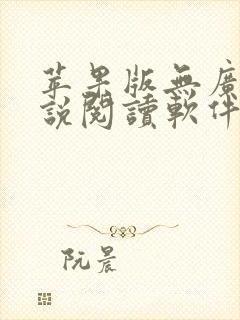 苹果版無廣
說閱讀軟件
阮晨